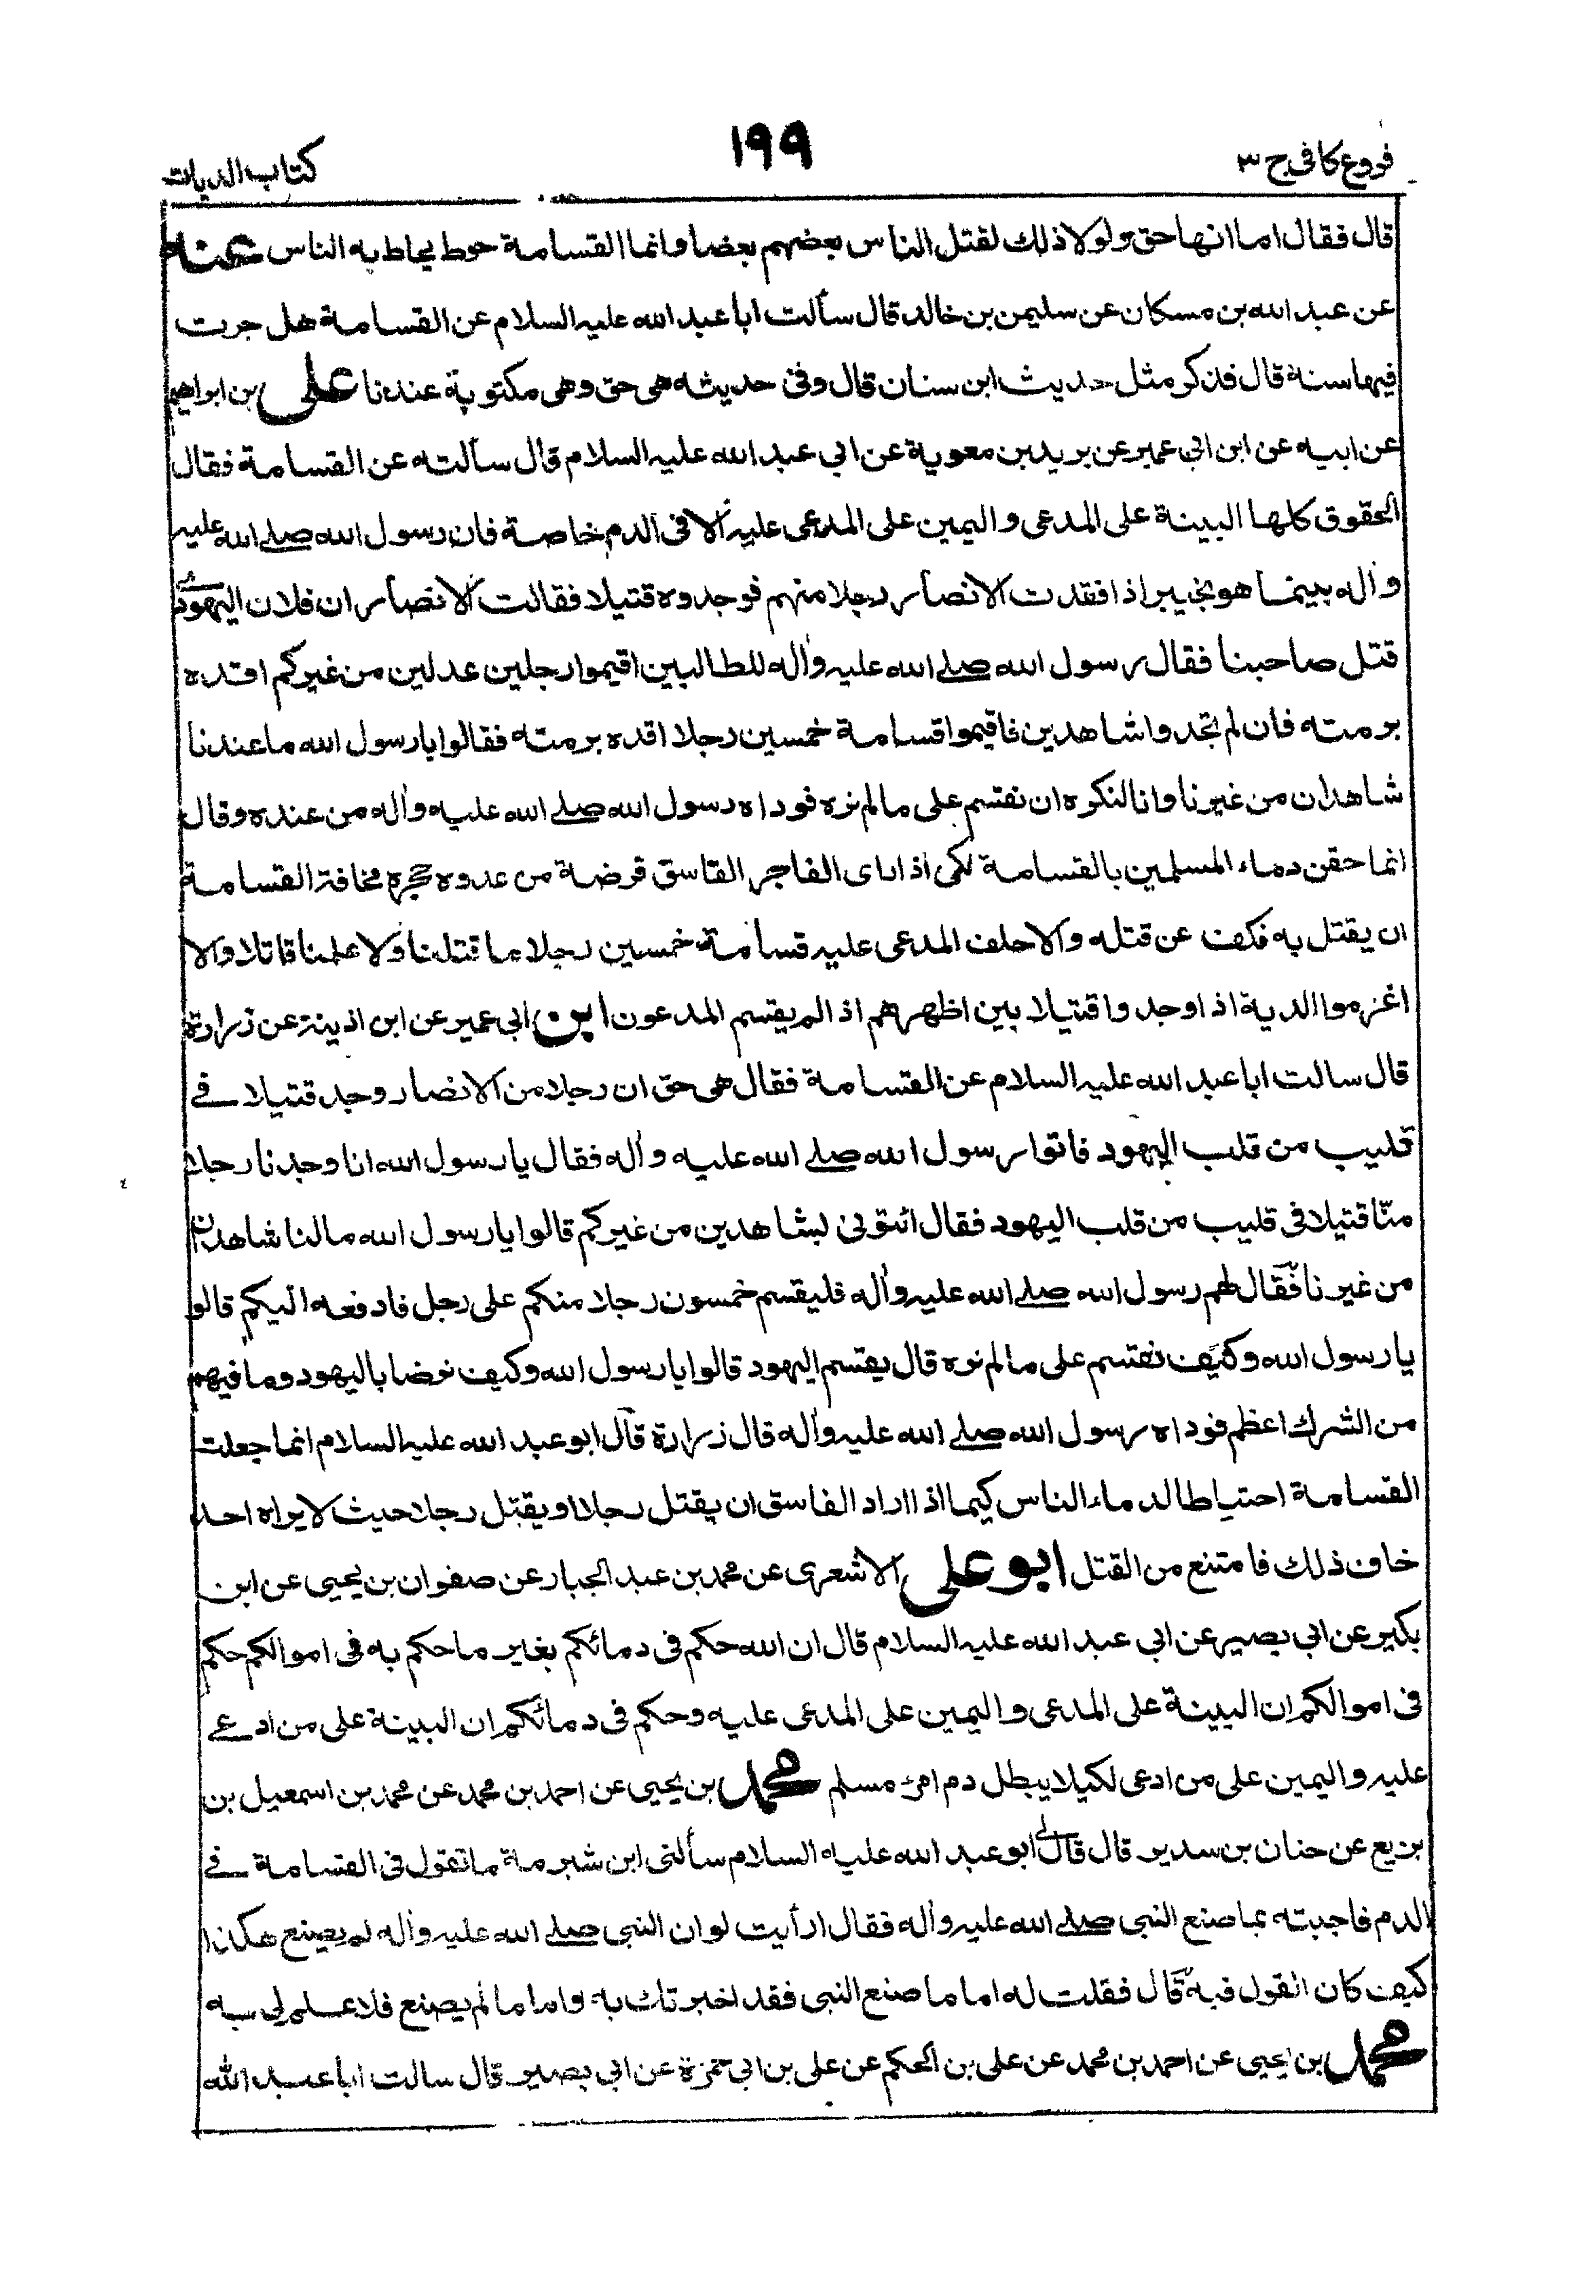 فروع كافى ج ٣
١٩٩
كتاب الديات
قال فقال اما انها حق ولولا ذلك لقتل الناس بعضهم بعضا وانما القسامة حوط يحاط به الناس عنه
عن عبد الله بن مسكان عن سليمن بن خالد قال سألت ابا عبد الله عليه السلام عن القسامة هل جرت
فيها سنة قال فذكر مثل حديث ابن سنان قال وفى حديثه هى حق وهى مكتوبة عندنا على بن ابراهيم
عن ابيه عن ابن ابى عمير عن بريد بن معوية عن ابى عبد الله عليه السلام قال سألته عن القسامة فقال
الحقوق كلها البينة على المدعى واليمين على المدعى عليه الا فى الدم خاصة فان رسول الله صلى الله عليه
وآله بينما هو بخيبر اذا فقدت الانصار رجلا منهم فوجدوه قتيلا فقالت الانصار ان فلان اليهودى
قتل صاحبنا فقال رسول الله صلى الله عليه وآله للطالبين اقيموا رجلين عدلين من غيركم اقده
برمته فان لم تجدوا شاهدين فاقيموا قسامة خمسين رجلا اقده برمته فقالوا يا رسول الله ما عندنا
شاهدان من غيرنا وانا لنكره ان نقسم على ما لم نره فوداه رسول الله صلى الله عليه وآله من عنده وقال
انما حقن دماء المسلمين بالقسامة لكى اذا راى الفاجر الفاسق فرصة من عدوه حجره مخافة القسامة
ان يقتل به فكف عن قتله والا حلف المدعى عليه قسامة خمسين رجلا ما قتلنا ولا علمنا قاتلا والا
اغرموا الدية اذا وجدوا قتيلا بين اظهرهم اذا لم يقسم المدعون ابن ابى عمير عن ابن اذينة عن زرارة
قال سالت ابا عبد الله عليه السلام عن القسامة فقال هى حق ان رجلا من الانصار وجد قتيلا فى
قليب من قلب اليهود فاتوا رسول الله صلى الله عليه وآله فقال يا رسول الله انا وجدنا رجلا
منّا قتيلا فى قليب من قلب اليهود فقال ائتونى بشاهدين من غيركم قالوا يا رسول الله مالنا شاهدان
من غيرنا فقال لهم رسول الله صلى الله عليه وآله فليقسم خمسون رجلا منكم على رجل فادفعه اليكم قالوا
يا رسول الله وكيف نقسم على ما لم نره قال يقسم اليهود قالوا يا رسول الله وكيف نرضا باليهود وما فيهم
من الشرك اعظم فوداه رسول الله صلى الله عليه وآله قال زرارة قال ابو عبد الله عليه السلام انما جعلت
القسامة احتياطا لدماء الناس كيما اذا اراد الفاسق ان يقتل رجلا او يقتل رجلا حيث لا يراه احد
خاف ذلك فامتنع من القتل ابو على الاشعرى عن محمد بن عبد الجبار عن صفوان بن يحيى عن ابن
بكير عن ابى بصير عن ابى عبد الله عليه السلام قال ان الله حكم فى دمائكم بغير ما حكم به فى اموالكم حكم
فى اموالكم ان البينة على المدعى واليمين على المدعى عليه وحكم فى دمائكم ان البينة على من ادعى
عليه واليمين على من ادعى لكيلا يبطل دم امرئ مسلم محمد بن يحيى عن احمد بن محمد عن محمد بن اسمعيل بن
بزيع عن حنان بن سدير قال قال لى ابو عبد الله عليه السلام سألنى ابن شبرمة ما تقول فى القسامة فى
الدم فاجبته بما صنع النبى صلى الله عليه وآله فقال ارأيت لو ان النبى صلى الله عليه وآله لم يصنع هكذا
كيف كان القول فيه قال فقلت له اما ما صنع النبى فقد اخبرتك به واما ما لم يصنع فلا علم لى به
محمد بن يحيى عن احمد بن محمد عن على بن الحكم عن على بن ابى حمزة عن ابى بصير قال سالت ابا عبد الله